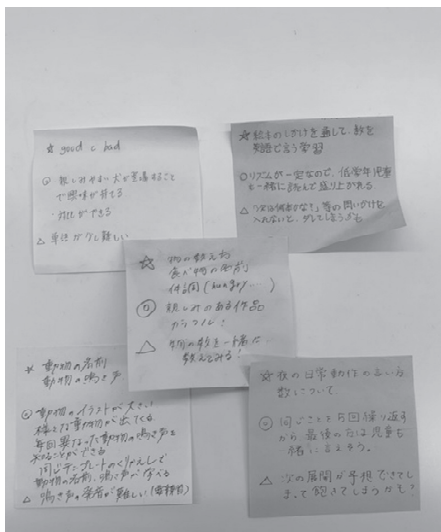 ☆ good と bad
◎ 親しみやすい犬が登場すること
で興味が持てる
・対比ができる
△ 単語が少し難しい
☆ 絵本のしかけを通して、数を
英語で言う学習
○ リズムが一定なので、低学年児童
と一緒に読んで盛り上がれる
△ 「次は何かな?」等の問いかけも
入れないと、ダレてしまうかも
☆ 物の数え方
食べ物の名前
体調(hungry...)
◎ 親しみのある作品
カラフル!
△ 物の数を一緒に
数えてみる!
☆ 動物の名前
動物の鳴き声
◎ 動物のイラストが大きい
様々な動物が出てくる
毎回異なった動物の鳴き声を
することができる
同じテンプレートのくりかえしで
動物の名前、鳴き声が学べる
△ 鳴き声の発音が難しい
☆ 我の日常動作の言い方
数について
◎ 同じことを5回繰り返す
から最後の方は児童も
一緒に言えそう。
△ 次の展開が予想できてし
まって飽きてしまうかも?